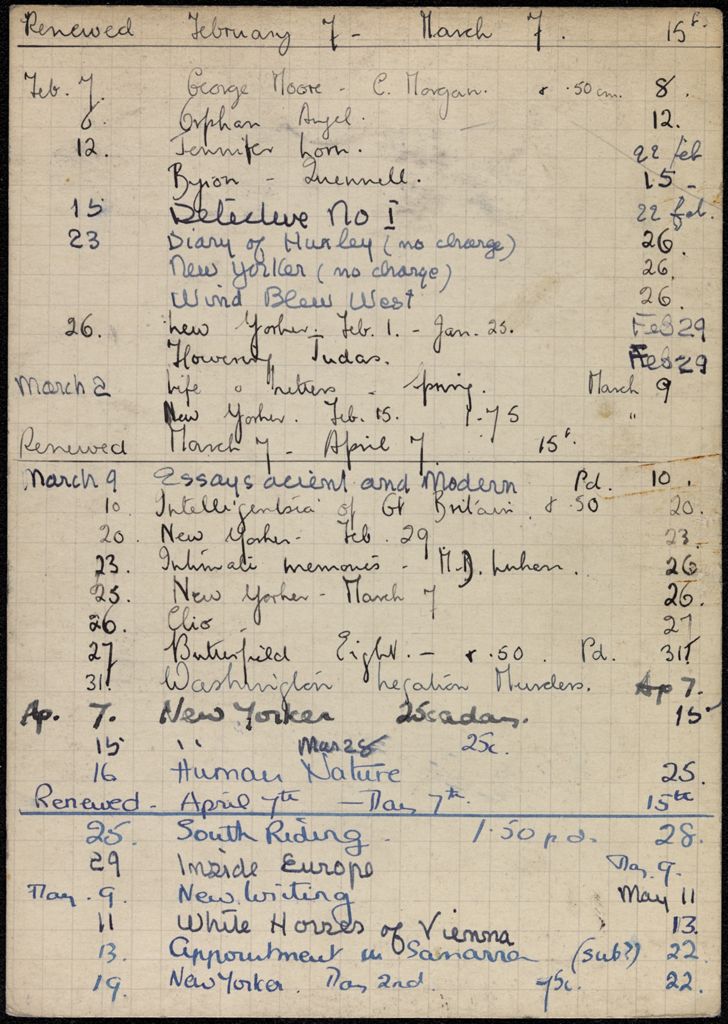 Renewed February 7 - March 7. 15f.
Feb. 7. George Moore - C. Morgan. & .50 cm. 8.
Orphan Angel. 12.
12. Jennifer Lorn. 22 feb
Byron - Quennell. 15 -
15 Detective No I 22 feb.
23 Diary of Huxley (no charge) 26.
New Yorker (no charge) 26.
Wind Blew West 26.
26. New Yorker. Feb. 1. - Jan. 25. Feb 29
Flowering Judas. Feb 29
March 2 Life o Letters - Spring. March 9
New Yorker. Feb. 15. 1.75 "
Renewed March 7 - April 7 15f.
March 9 Essays acient and Modern Pd. 10.
10. Intelligentsia of Gt Britain & .50 20.
20. New Yorker - Feb. 29 23.
23. Intimate memories - M.D. Luhan. 26
25. New Yorker - March 7 26.
26. Clio. 27
27 Butterfield Eight. - & .50. Pd. 31
31. Washington Legation Murders. Ap 7.
Ap. 7. New Yorker 25c a day. 15
15 " Mar 28 25c.
16 Human Nature 25.
Renewed - April 7th - May 7th. 15th
25. South Riding. 1.50 pd. 28.
29 Inside Europe May. 9.
May. 9. New Writing May 11
11 White Horses of Vienna 13.
13. Appointment in Samarra (sub?) 22.
19. New Yorker. May 2nd. 75c. 22.